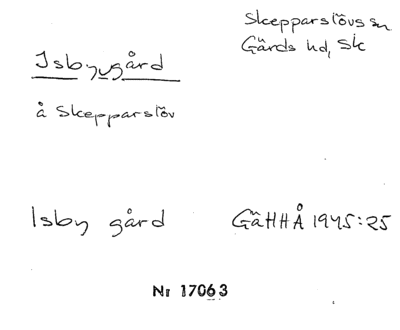 Skepparslövs sn
Gärds hd, Sk
Isby gård
å Skepparslöv
Isby gård GäHHÅ 1945:25
Nr 17063